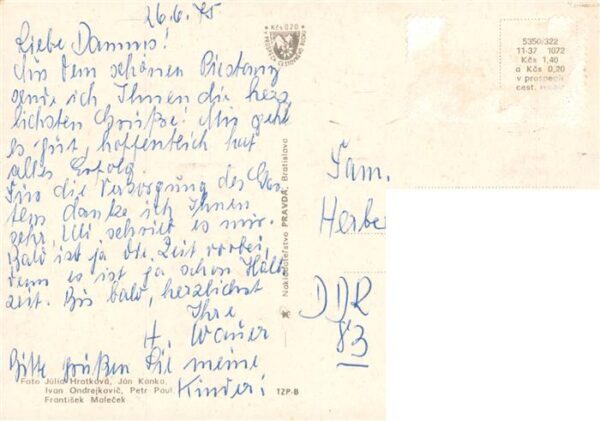 26.6.75
Liebe Damms!
Aus dem schönen Piestany
sende ich Ihnen die herz
lichsten Grüße! Mir geht
es gut, hoffentlich hat
alles Erfolg.
Für die Versorgung des Gar
tens danke ich Ihnen
sehr, Uli schrieb es mir.
Bald ist ja die Zeit vorbei,
denn es ist ja schon Halb
zeit. Bis bald, herzlichst
Ihre
H. Wauer
Bitte grüßen Sie meine
Kinder!
Kčs 0,20
5350/322
11-37 1072
Kčs 1,40
a Kčs 0,20
v prospech
cest. ruchu
Nakladateľstvo PRAVDA, Bratislava
Fam.
Herbe
DDR
83
Foto Júlia Hratková, Ján Kanka,
Ivan Ondrejkovič, Petr Paul,
František Maleček
TZP-B